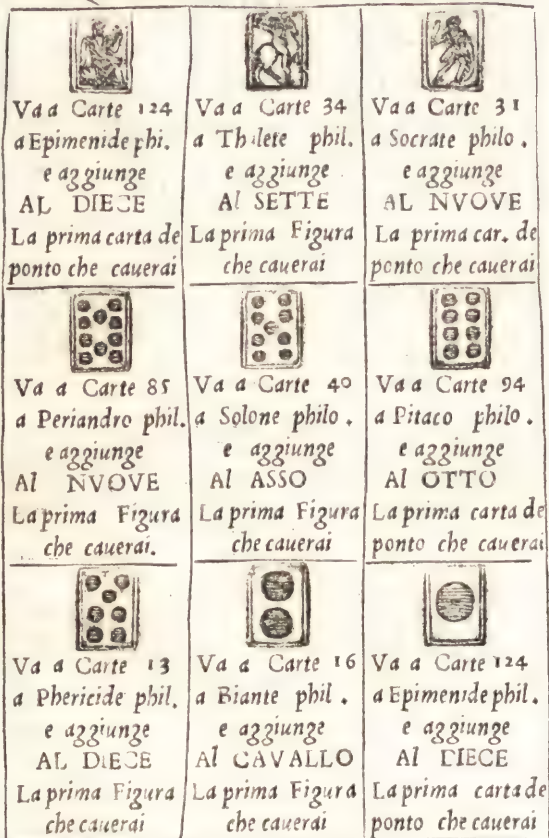 Va a Carte 124
a Epimenide phi.
e aggiunge
AL DIECE
La prima carta de
ponto che cauerai
Va a Carte 34
a Thilete phil.
e aggiunge
Al SETTE
La prima Figura
che cauerai
Va a Carte 31
a Socrate philo.
e aggiunge
AL NVOVE
La prima car. de
ponto che cauerai
Va a Carte 85
a Periandro phil.
e aggiunge
Al NVOVE
La prima Figura
che cauerai.
Va a Carte 40
a Solone philo.
e aggiunge
Al ASSO
La prima Figura
che cauerai
Va a Carte 94
a Pitaco philo.
e aggiunge
Al OTTO
La prima carta de
ponto che cauerai
Va a Carte 13
a Phericide phil.
e aggiunge
AL DIECE
La prima Figura
che cauerai
Va a Carte 16
a Biante phil.
e aggiunge
Al CAVALLO
La prima Figura
che cauerai
Va a Carte 124
a Epimenide phil.
e aggiunge
Al DIECE
La prima carta de
ponto che cauerai